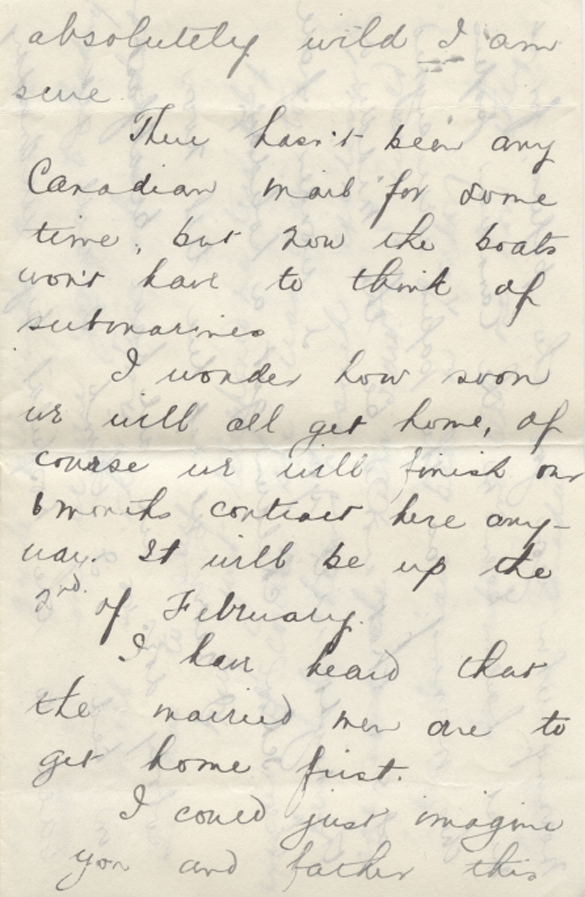 absolutely wild I am
sure.
There hasn't been any
Canadian mail for some
time, but now the boats
won't have to think of
submarines
I wonder how soon
we will all get home, of
course we will finish our
6 months contract here any-
way. It will be up the
2nd. of February.
I have heard that
the married men are to
get home first.
I could just imagine
you and father this